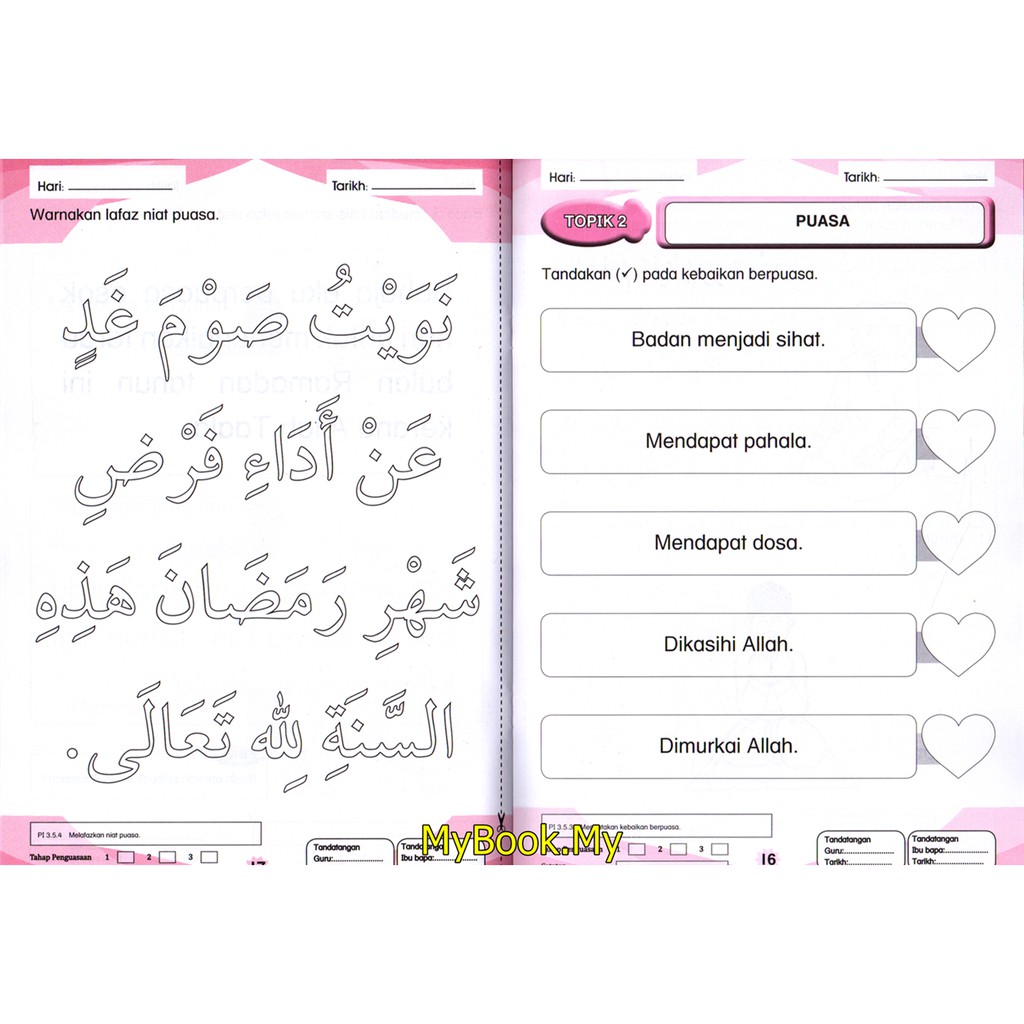 Hari:
Tarikh:
Warnakan lafaz niat puasa.
نَوَيْتُ صَوْمَ غَدٍ
عَنْ أَدَاءِ فَرْضِ
شَهْرِ رَمَضَانَ هَذِهِ
السَّنَةِ لِلّٰهِ تَعَالَى.
PI 3.5.4 Melafazkan niat puasa.
Tahap Penguasaan 1 2 3
17
Tandatangan
Guru:
Tandatangan
Ibu bapa:
Hari:
Tarikh:
TOPIK 2
PUASA
Tandakan (✓) pada kebaikan berpuasa.
Badan menjadi sihat.
Mendapat pahala.
Mendapat dosa.
Dikasihi Allah.
Dimurkai Allah.
PI 3.5.3 kebaikan berpuasa.
1 2 3
16
Tandatangan
Guru:
Tarikh:
Tandatangan
Ibu bapa:
Tarikh:
MyBook.My